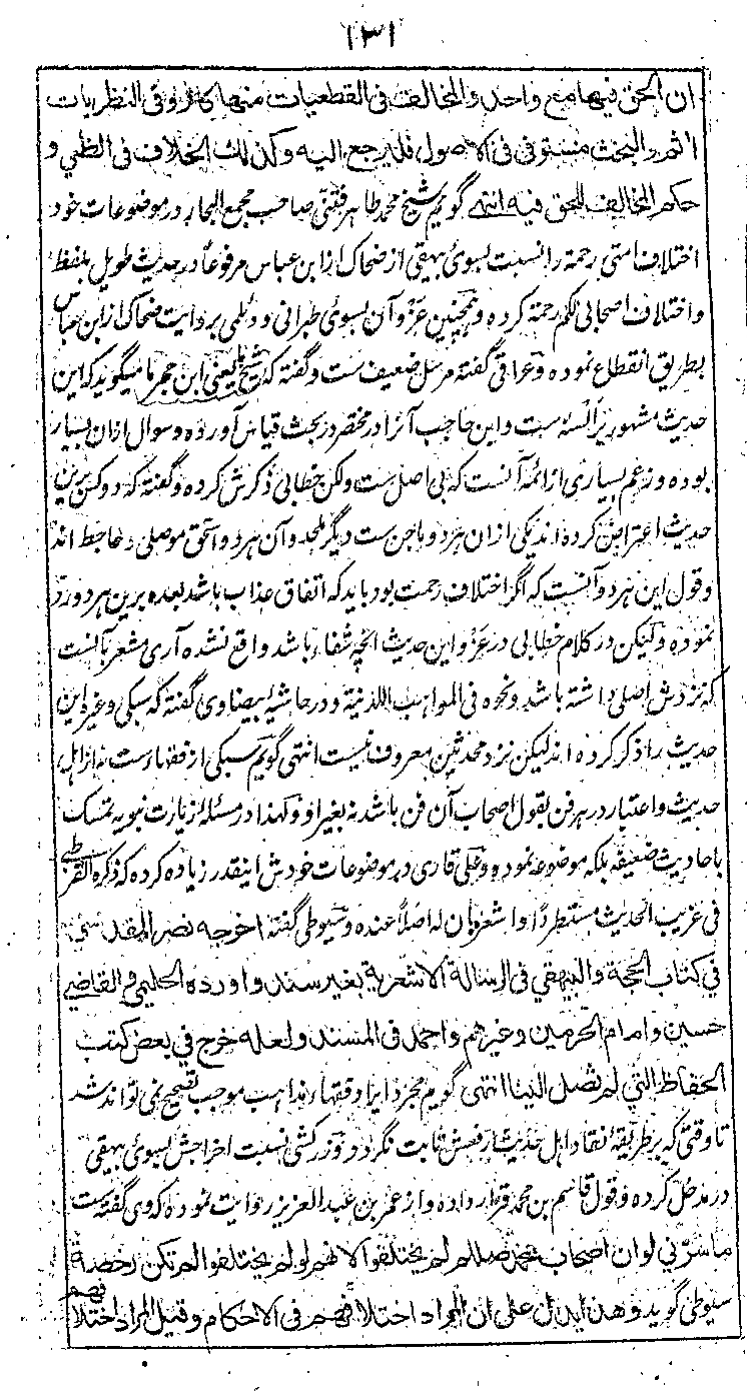 ١٣١
ان الحق فيها مع واحد والمخالف فى القطعيات منها كافر وفى النظريات
اثم والبحث مستوفى فى الاصول فليرجع اليه وكذلك الخلاف فى الظني و
حكم المخالف للحق فيه انتهى گويم شيخ محمد طاهر فتنى صاحب مجمع البحار در موضوعات خود
اختلاف امتى رحمة را نسبت بسوئ بيهقى از ضحاك از ابن عباس مرفوعاً در حديث طويل بلفظ
واختلاف اصحابى لكم رحمة كرده و همچنين عزو آن بسوئ طبرانى و ديلمى بروايت ضحاك از ابن عباس
بطريق انقطاع نموده و عراقى گفته مرسل ضعيف ست و گفته كه شيخ ما يعنى ابن حجر ميگويد كه اين
حديث مشهور بر السنه ست و ابن حاجب آنرا در مختصر در بحث قياس آورده و سوال ازان بسيار
بوده و زعم بسيارى از ائمه آنست كه بى اصل ست ولكن خطابى ذكرش كرده و گفته كه دو كس برين
حديث اعتراض كرده اند يكى ازان هر دو ماجن ست ديگر ملحد و آن هر دو اسحق موصلى و جاحظ اند
و قول اين هر دو آنست كه اگر اختلاف رحمت بود بايد كه اتفاق عذاب باشد بعده برين هر دو رد
نموده وليكن در كلام خطابى در عزو اين حديث انچه شفاء باشد واقع نشده آرى مشعر بآنست
كه نزدش اصلى داشته باشد ونحوه فى المواهب اللدنية و در حاشيۀ بيضاوى گفته كه سبكى وغيره اين
حديث را ذكر كرده اند ليكن نزد محدثين معروف نيست انتهى گويم سبكى از فقهاء ست نه از اهل
حديث و اعتبار در هر فن بقول اصحاب آن فن باشد نه بغير او ولهذا در مسئلۀ زيارت نبويه تمسك
باحاديث ضعيفه بلكه موضوعه نموده و على قارى در موضوعات خودش اينقدر زياده كرده كه ذكره القرطبى
فى غريب الحديث مستطرداً واشعر بان له اصلاً عنده و سيوطى گفته اخرجه نصر المقدسى
فى كتاب الحجة والبيهقي فى الرسالة الاشعرية بغير سند واورده الحليمى والقاضي
حسين وامام الحرمين وغيرهم واحمد فى المسند ولعله خرج في بعض كتب
الحفاظ التى لم تصل الينا انتهى گويم مجرد ايراد فقهاء مذاهب موجب تصحيح نمى تواند شد
تا وقتى كه بر طريقۀ نقاد اهل حديث رفعش ثابت نگردد و زركشى نسبت اخراجش بسوئ بيهقى
در مدخل كرده و قول قاسم بن محمد قرار داده و از عمر بن عبد العزيز روايت نموده كه وى گفته ست
ما سرّنى لو ان اصحاب محمد صللم لم يختلفوا لانهم لو لم يختلفوا لم تكن رخصة
سيوطى گويد وهذا يدل على ان المراد اختلافهم فى الاحكام وقيل المراد اختلافهم